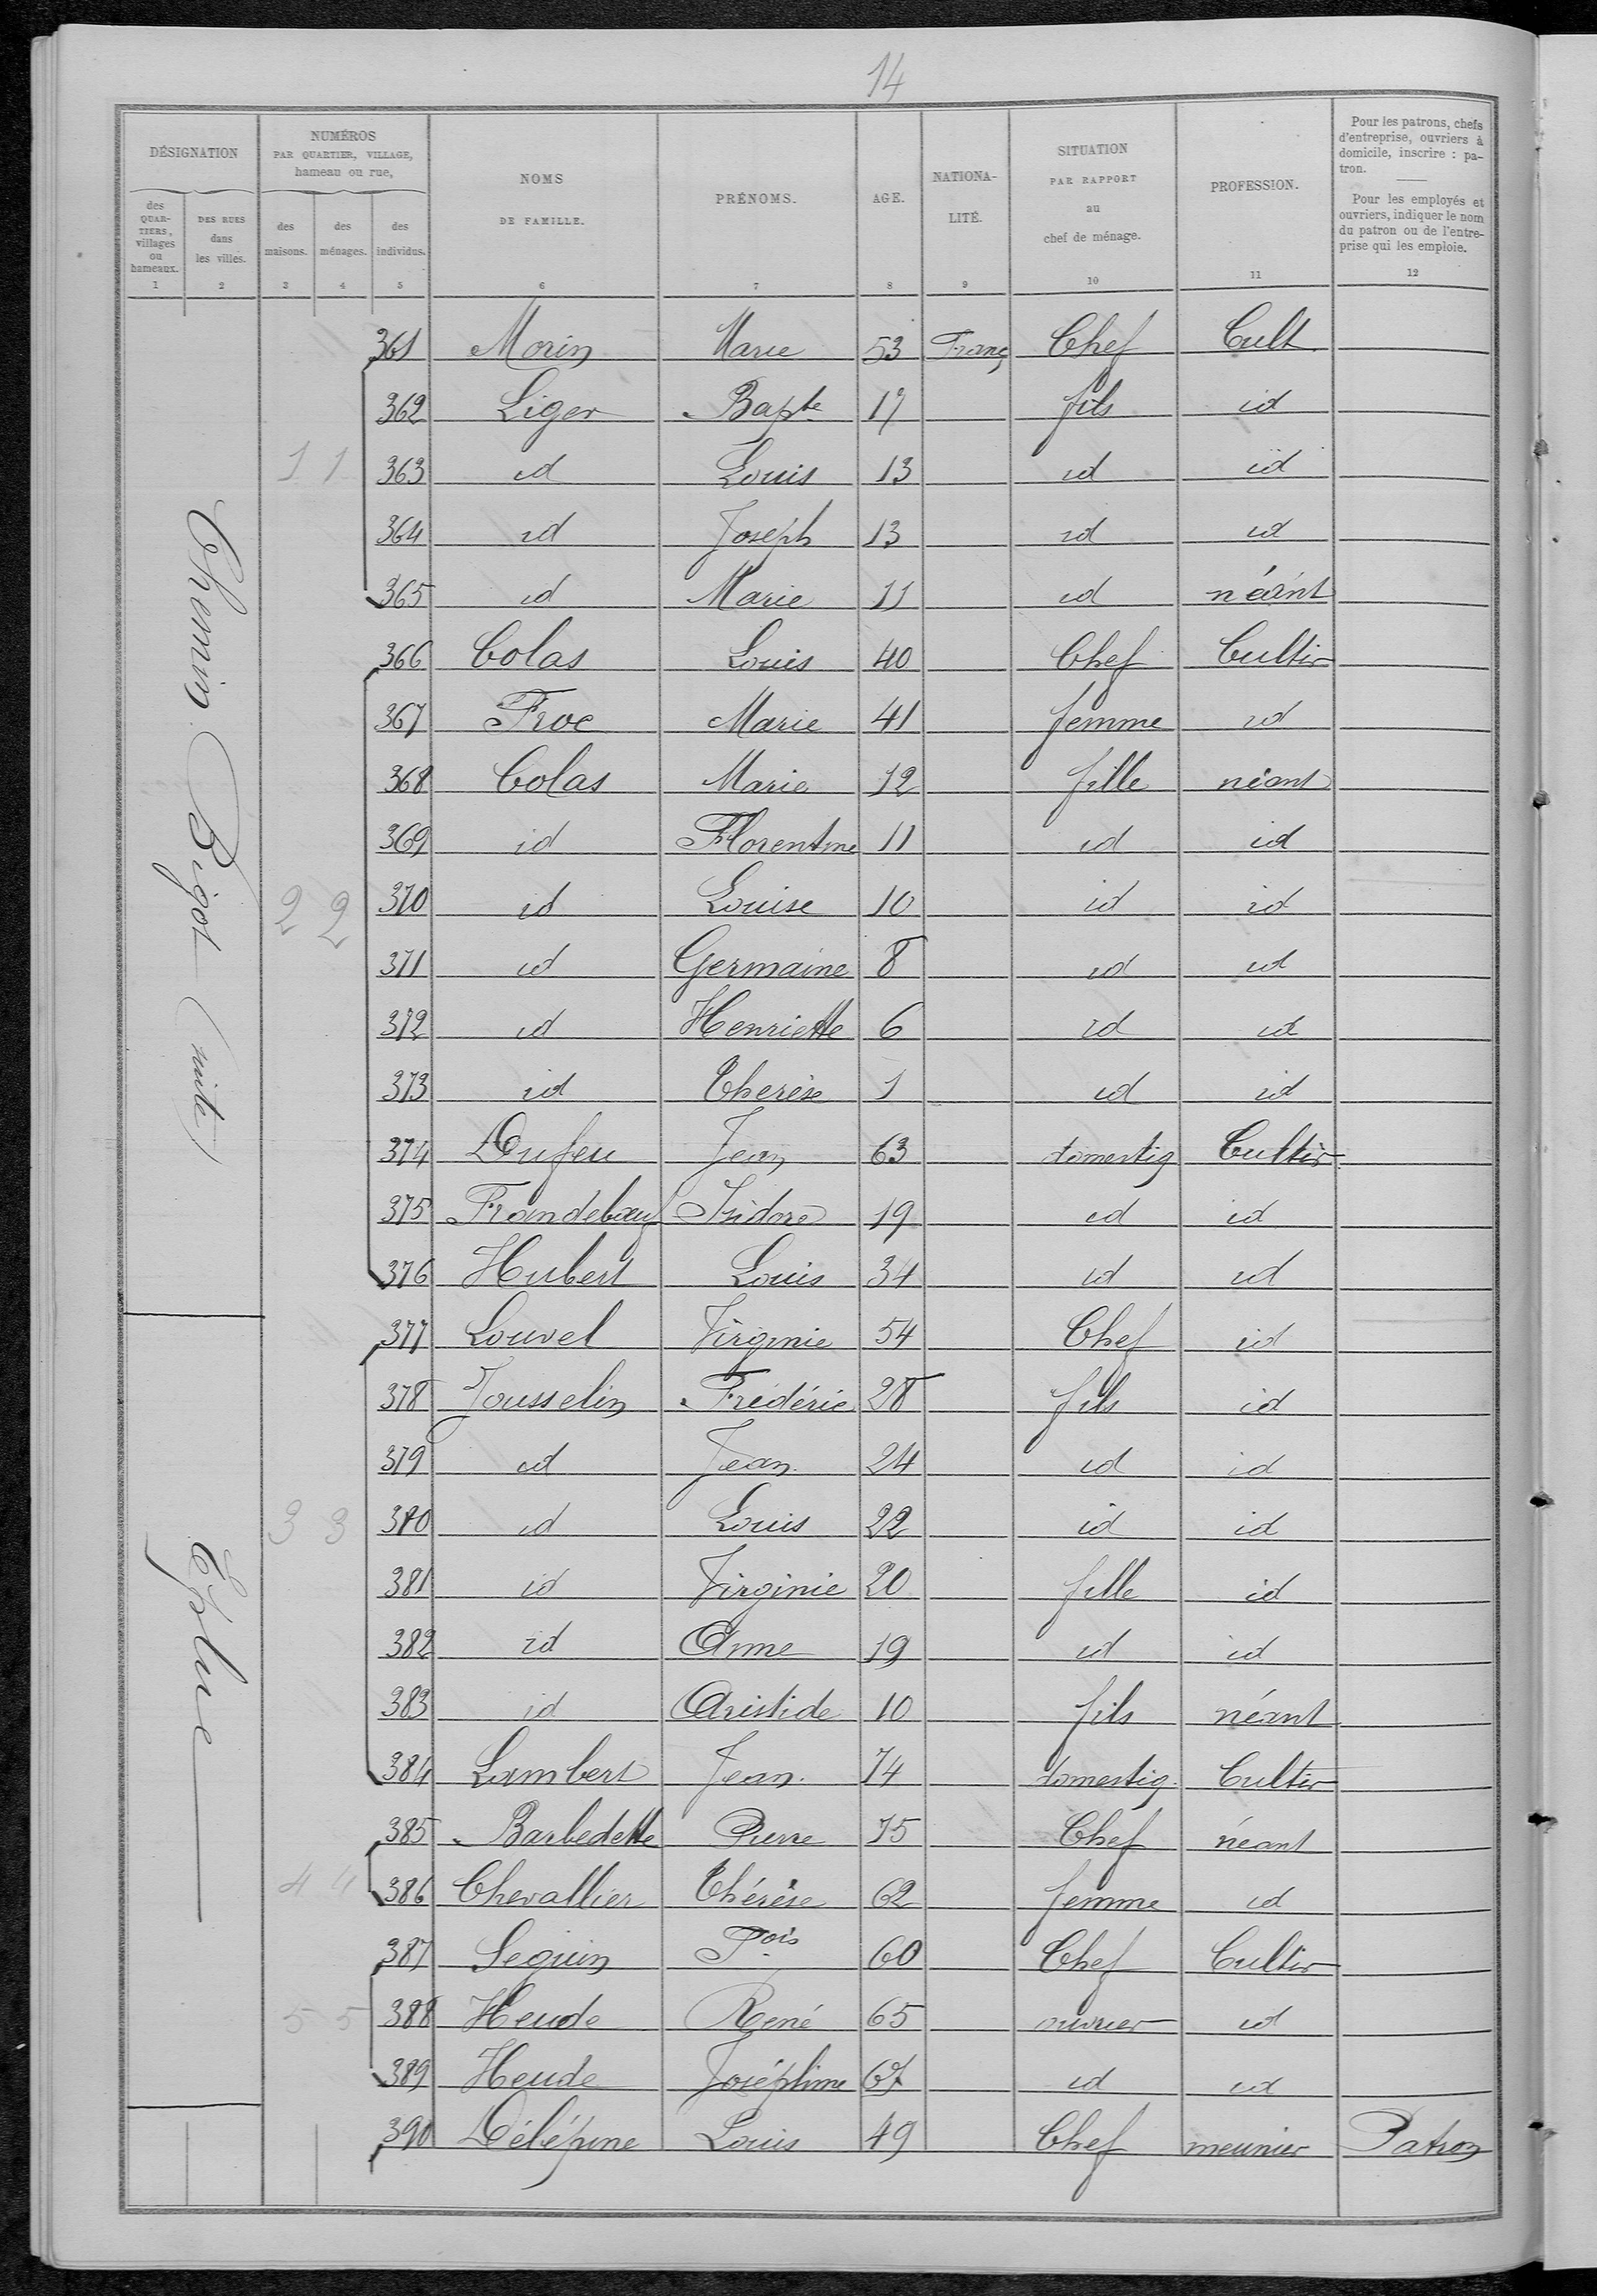 14
DÉSIGNATION
NUMÉROS
PAR QUARTIER, VILLAGE,
hameau ou rue,
des QUARTIERS, villages ou hameaux.
DES RUES dans les villes.
des maisons.
des ménages.
des individus.
NOMS
DE FAMILLE.
PRÉNOMS.
AGE.
NATIONA-
LITÉ.
SITUATION
PAR RAPPORT
au
chef de ménage.
PROFESSION.
Pour les patrons, chefs
d'entreprise, ouvriers à
domicile, inscrire : pa-
tron.
Pour les employés et
ouvriers, indiquer le nom
du patron ou de l'entre-
prise qui les emploie.
1 2 3 4 5 6 7 8 9 10 11 12
Chemin Bigot (suite)
361 Morin Marie 53 Franç Chef Cult.
362 Liger Bapte 17 fils id
1 1 363 id Louis 13 id id
364 id Joseph 13 id id
365 id Marie 11 id néant
366 Colas Louis 40 Chef Cultir
367 Froc Marie 41 femme id
368 Colas Marie 12 fille néant
369 id Florentine 11 id id
2 2 370 id Louise 10 id id
371 id Germaine 8 id id
372 id Henriette 6 id id
373 id Therèse 1 id id
374 Dufeu Jean 63 domestiq Cultir
375 Frandeboeuf Isidore 19 id id
376 Hubert Louis 34 id id
377 Louvel Virginie 54 Chef id
378 Jousselin Frédéric 28 fils id
379 id Jean 24 id id
3 3 380 id Louis 22 id id
381 id Virginie 20 fille id
382 id Anne 19 id id
383 id Aristide 10 fils néant
384 Lambert Jean 74 domestiq. Cultir
385 Barbedette Pierre 75 Chef néant
4 4 386 Chevallier Thérèse 62 femme id
387 Seguin Fois 60 Chef Cultir
5 5 388 Heude René 65 ouvrier id
389 Heude Joséphine 67 id id
390 Délépine Louis 49 Chef meunier Patron